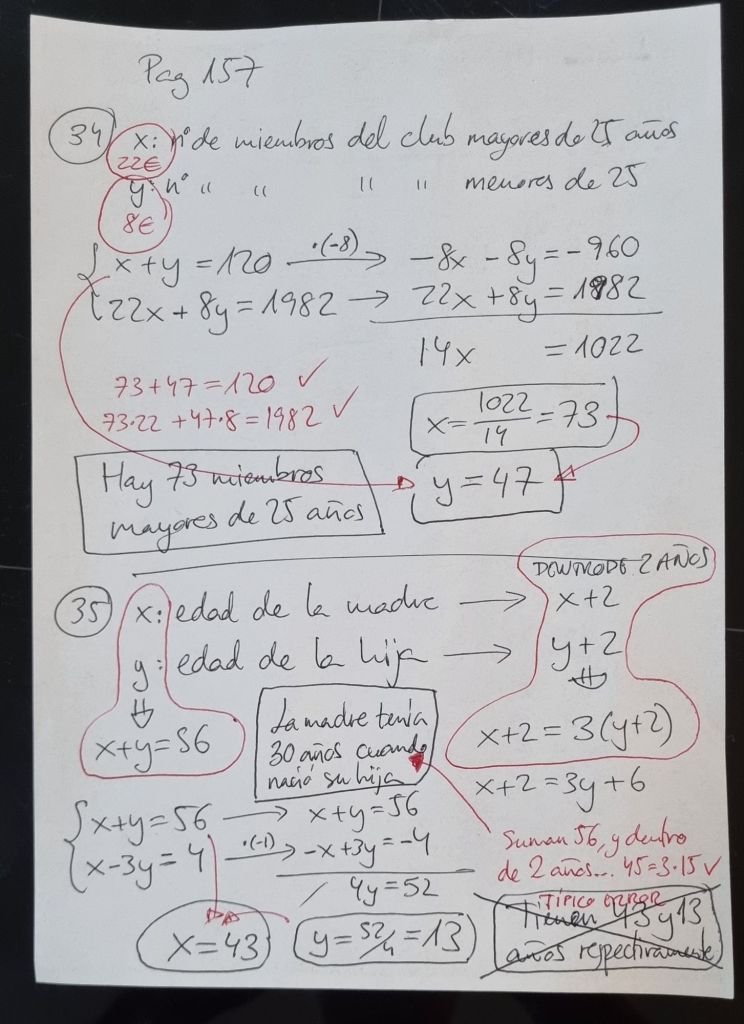 Pag 157
34 x: nº de miembros del club mayores de 25 años
22€
y: nº " " " " menores de 25
8€
x+y=120 ·(-8) → -8x -8y=-960
22x+8y=1982 → 22x+8y=1982
14x =1022
73+47=120 ✓
73·22+47·8=1982 ✓
x=1022/14=73
y=47
Hay 73 miembros
mayores de 25 años
DENTRO DE 2 AÑOS
35 x: edad de la madre → x+2
y: edad de la hija → y+2
⇓ ⇓
x+y=56
x+2=3(y+2)
La madre tenía
30 años cuando
nació su hija
x+2=3y+6
x+y=56 → x+y=56
x-3y=4 ·(-1) → -x+3y=-4
/ 4y=52
Suman 56, y dentro
de 2 años... 45=3·15 ✓
x=43
y=52/4=13
TÍPICO ERROR
Tienen 43 y 13
años respectivamente